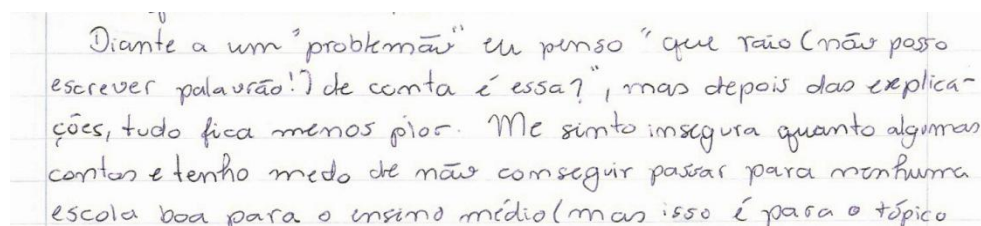 Diante a um "problemão" eu penso "que raio (não posso
escrever palavrão!) de conta é essa?", mas depois das explica-
ções, tudo fica menos pior. Me sinto insegura quanto algumas
contas e tenho medo de não conseguir passar para nenhuma
escola boa para o ensino médio (mas isso é para o tópico